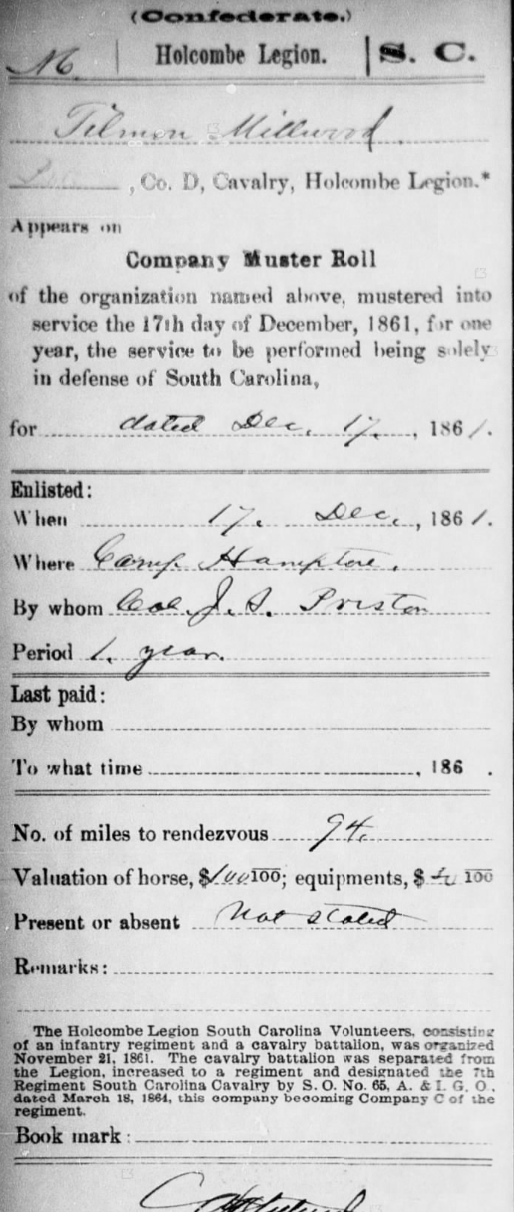 (Confederate.)
M | Holcombe Legion. | S. C.
Tilmon Millwood.
, Co. D, Cavalry, Holcombe Legion.*
Appears on
Company Muster Roll
of the organization named above, mustered into
service the 17th day of December, 1861, for one
year, the service to be performed being solely
in defense of South Carolina,
for dated Dec. 17, 1861.
Enlisted:
When 17. Dec., 1861.
Where Camp Hampton.
By whom Col. J. S. Preston
Period 1. year.
Last paid:
By whom
To what time , 186 .
No. of miles to rendezvous 94.
Valuation of horse, $100 100; equipments, $ 100
Present or absent Not stated
Remarks:
The Holcombe Legion South Carolina Volunteers, consisting
of an infantry regiment and a cavalry battalion, was organized
November 21, 1861. The cavalry battalion was separated from
the Legion, increased to a regiment and designated the 7th
Regiment South Carolina Cavalry by S. O. No. 65, A. & I. G. O.,
dated March 18, 1864, this company becoming Company C of the
regiment.
Book mark: